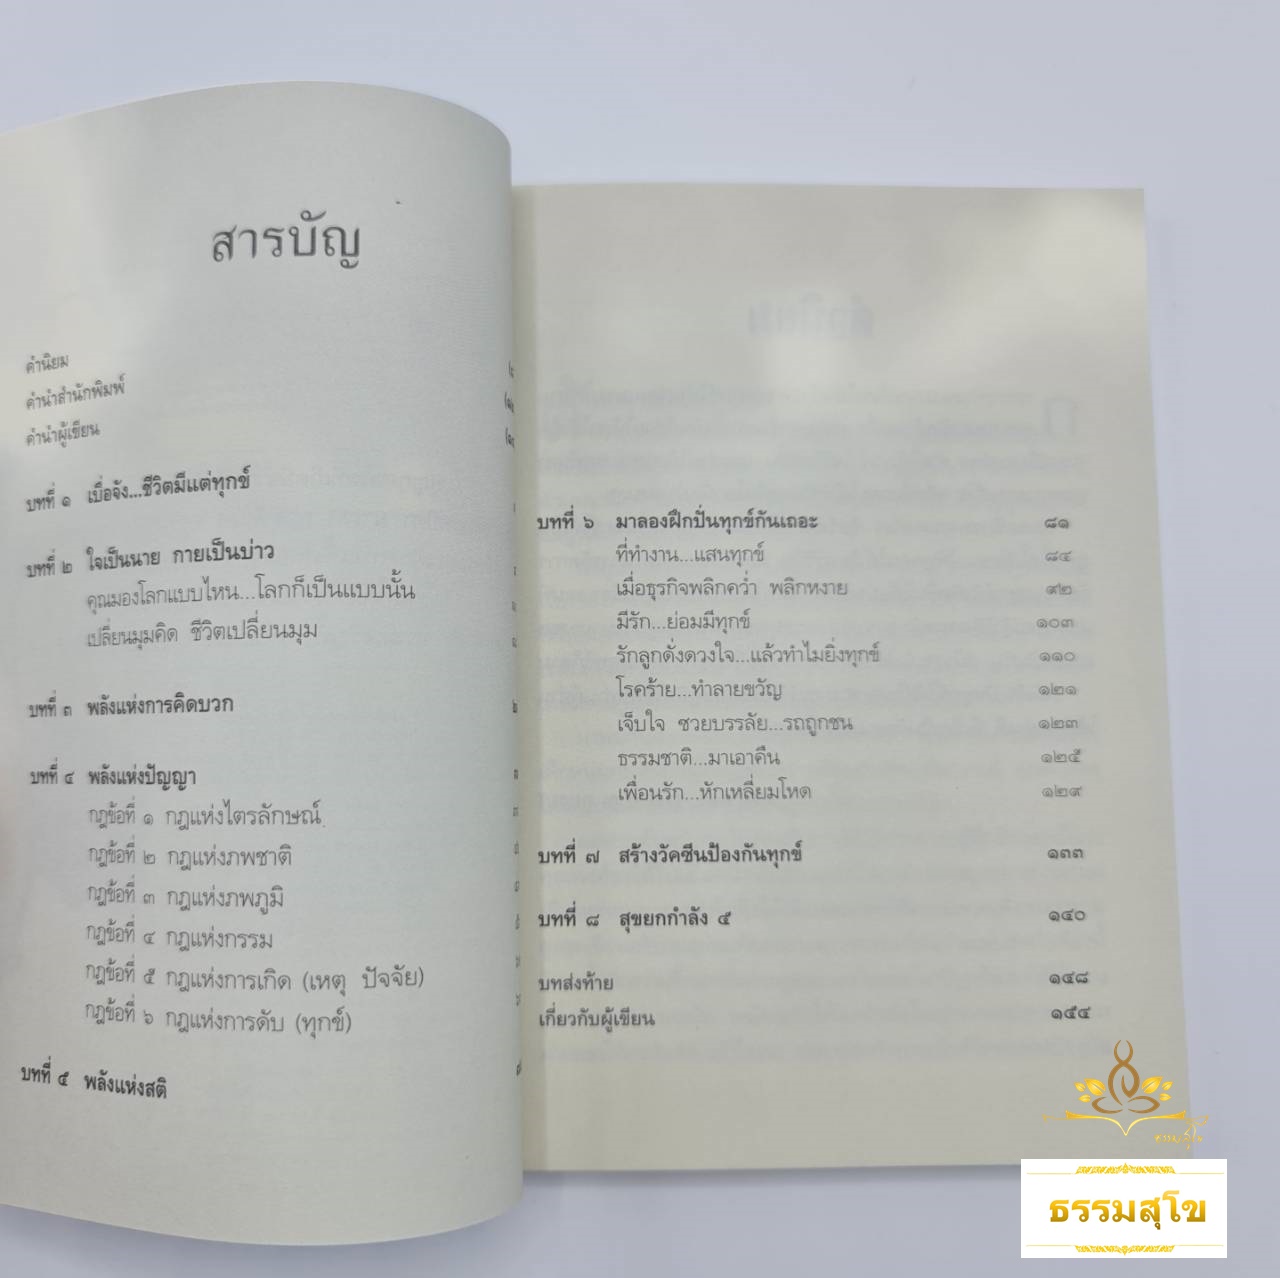 สารบัญ
คำนิยม
คำนำสำนักพิมพ์
คำนำผู้เขียน
บทที่ ๑ เบื่อจัง...ชีวิตมีแต่ทุกข์
บทที่ ๒ ใจเป็นนาย กายเป็นบ่าว
คุณมองโลกแบบไหน...โลกก็เป็นแบบนั้น
เปลี่ยนมุมคิด ชีวิตเปลี่ยนมุม
บทที่ ๓ พลังแห่งการคิดบวก
บทที่ ๔ พลังแห่งปัญญา
กฎข้อที่ ๑ กฎแห่งไตรลักษณ์
กฎข้อที่ ๒ กฎแห่งภพชาติ
กฎข้อที่ ๓ กฎแห่งภพภูมิ
กฎข้อที่ ๔ กฎแห่งกรรม
กฎข้อที่ ๕ กฎแห่งการเกิด (เหตุ ปัจจัย)
กฎข้อที่ ๖ กฎแห่งการดับ (ทุกข์)
บทที่ ๕ พลังแห่งสติ
บทที่ ๖ มาลองฝึกปั่นทุกข์กันเถอะ ๘๑
ที่ทำงาน...แสนทุกข์ ๘๔
เมื่อธุรกิจพลิกคว่ำ พลิกหงาย ๙๒
มีรัก...ย่อมมีทุกข์ ๑๐๓
รักลูกดั่งดวงใจ...แล้วทำไมยิ่งทุกข์ ๑๑๐
โรคร้าย...ทำลายขวัญ ๑๒๑
เจ็บใจ ซวยบรรลัย...รถถูกชน ๑๒๓
ธรรมชาติ...มาเอาคืน ๑๒๕
เพื่อนรัก...หักเหลี่ยมโหด ๑๒๙
บทที่ ๗ สร้างวัคซีนป้องกันทุกข์ ๑๓๓
บทที่ ๘ สุขยกกำลัง ๕ ๑๔๐
บทส่งท้าย ๑๔๘
เกี่ยวกับผู้เขียน ๑๕๔
ธรรมสุโข
ธรรมสุโข